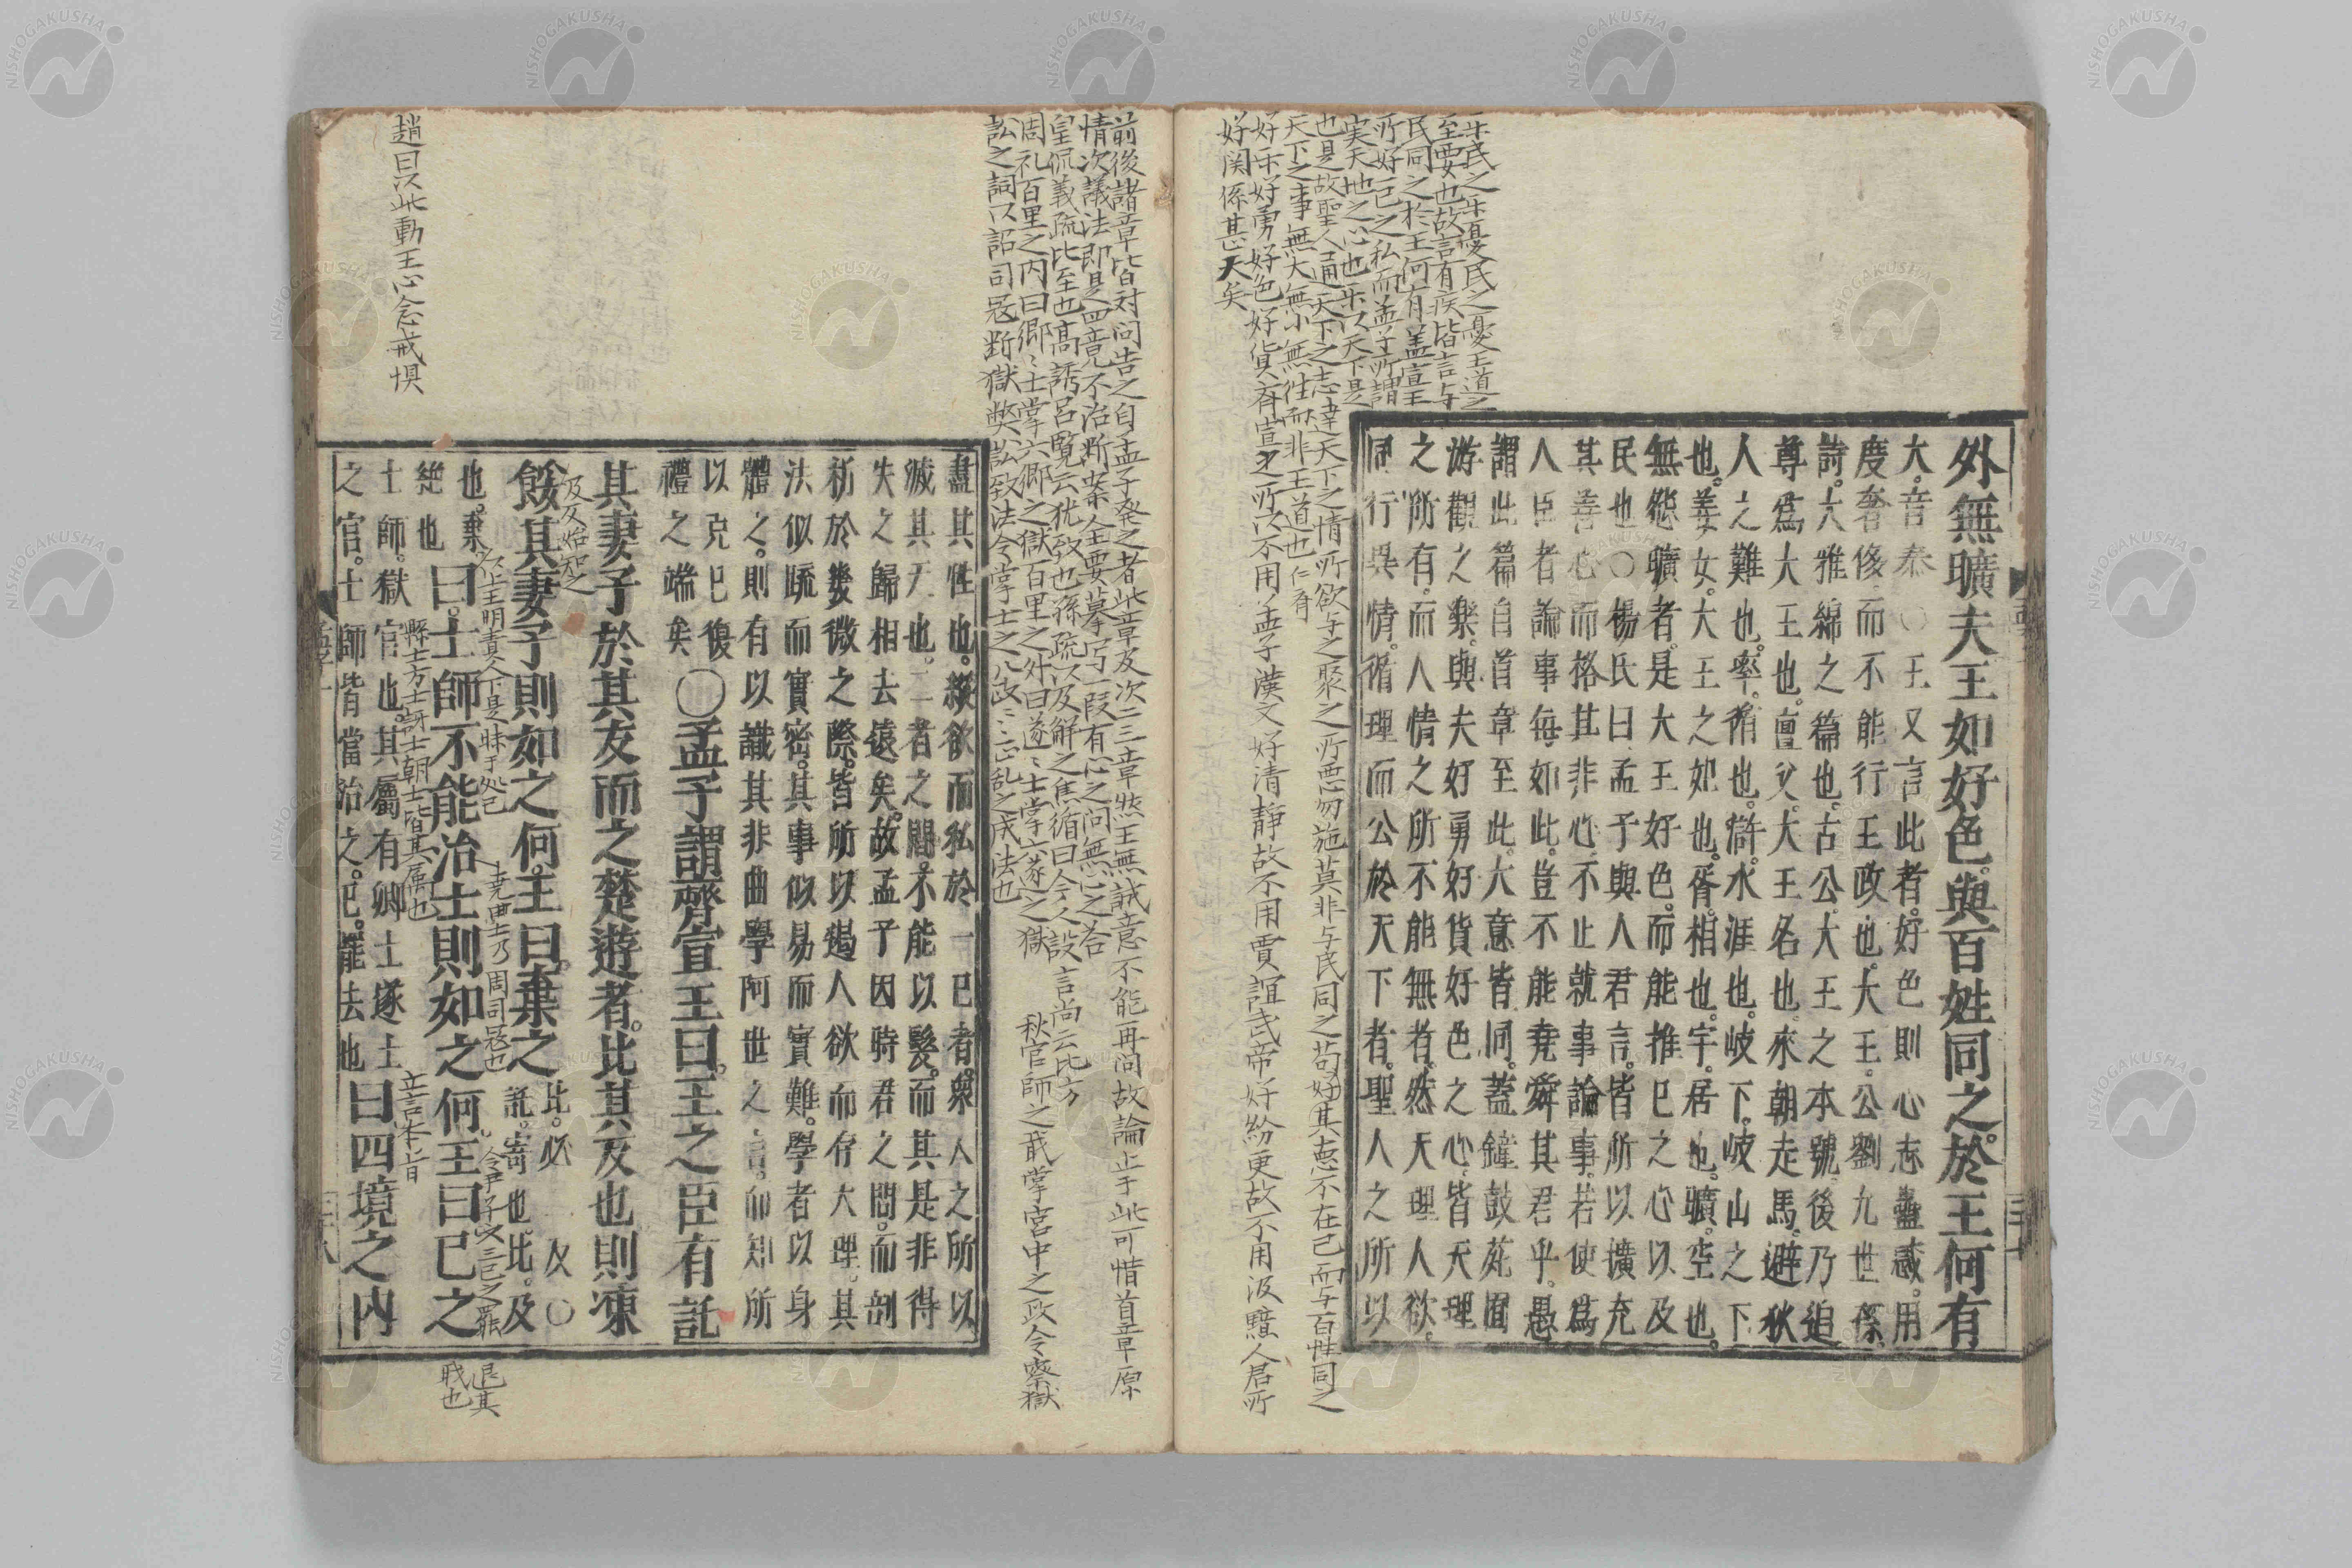 外無曠夫王如好色。與百姓同之。於王何有
大。音泰○王又言此者。好色則心志蠱惑。用
度奢侈。而不能行王政也。大王。公劉九世孫。
詩。大雅綿之篇也。古公。大王之本號。後乃追
尊爲大王也。亶父。大王名也。來朝走馬。避狄
人之難也。率。循也。滸。水涯也。岐下。岐山之下
也。姜女。大王之妃也。胥。相也。宇。居也。曠。空也。
無怨曠者。是大王好色。而能推己之心以及
民也○楊氏曰孟子與人君言。皆所以擴充
其善心而格其非心。不止就事論事。若使爲
人臣者論事每如此。豈不能堯舜其君乎。愚
謂此篇自首章至此。大意皆同。蓋鐘鼓苑囿
游觀之樂。與夫好勇好貨好色之心。皆天理
之所有。而人情之所不能無者。然天理人欲。
同行異情。循理而公於天下者。聖人之所以
樂民之樂憂民之憂王道之
至要也故言有疾皆言与
民同之於王何有盖宣王
所好一己之私而孟子所謂
実天地之心也樂以天下是
也是故聖人通天下之志達天下之情所欲与之聚之所惡勿施莫非与民同之苟好其惠不在己而与百姓同之
天下之事無大無小無往而非王道也仁斉
好樂好勇好色好貨斉宣之所以不用孟子漢文好清静故不用賈誼武帝好紛更故不用汲黯人君所
好関係甚大矣
盡其性也。縱欲而私於一己者。衆人之所以
滅其天也。二者之間。不能以髮。而其是非得
失之歸相去遠矣。故孟子因時君之問。而剖
析於幾微之際。皆所以遏人欲而存天理。其
法似疏而實密。其事似易而實難。學者以身
體之。則有以識其非曲學阿世之言。而知所
以克己復
禮之端矣
○孟子謂齊宣王曰。王之臣有託
其妻子於其友而之楚遊者。比其反也則凍
餒其妻子則如之何。王曰。棄之
比。必
及○
託。寄也。比。及
也。棄
絶也
曰。士師不能治士則如之何王曰已之
士師。獄官也。其屬有鄉士遂士
之官。士師皆當治之。已。罷去也
曰四境之内
前後諸章皆対問告之自孟子発之者此章及次二三章然王無誠意不能再问故論止于此可惜首章原
情次議法即是四竟不治断案全要摹写一段有心之问無心之答
皇侃義疏比至也高誘呂覧云犹致也孫疏以及解之焦循曰今人設言尚云比方
周礼百里之内曰郷〻士掌六郷之獄百里之外曰遂〻士掌六遂之獄
秋官師之職掌宮中之政令察獄
訟之詞以詔司寇断獄弊訟致法令掌士之八成〻〻正乱之成法也
及反始知之
以上王明責人下是昧于処己
堯典士乃周司寇也
令尹子文三已之罷
縣士方士訝士朝士皆其属也
立言本旨
退其
職也
趙曰以此動王心念戒惧